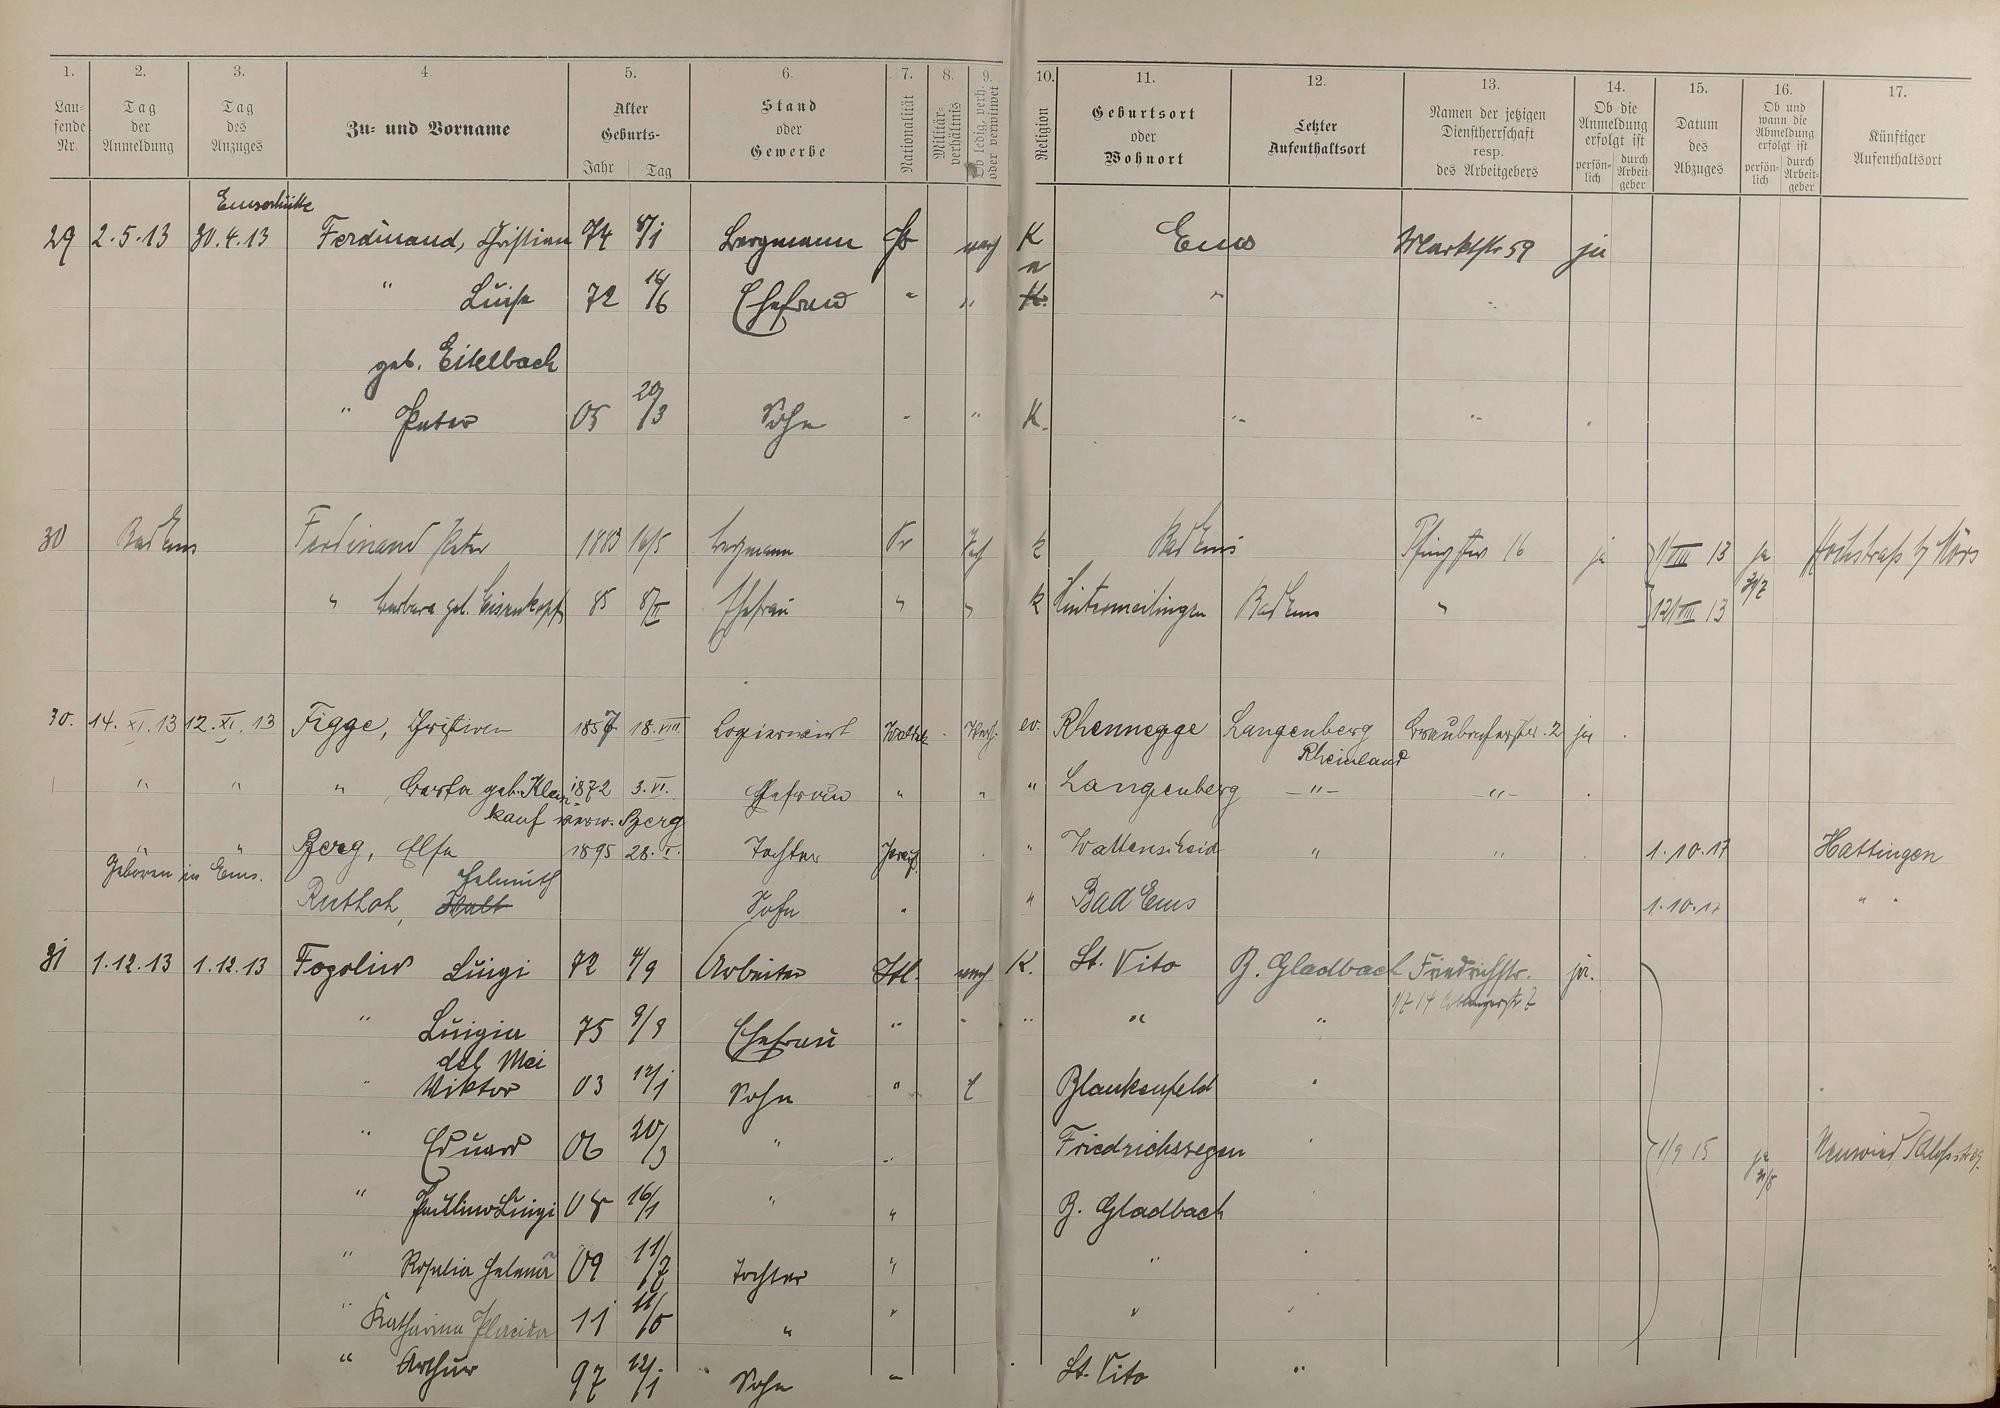 1. 2. 3. 4. 5. 6. 7. 8. 9. 10. 11. 12. 13. 14. 15. 16. 17.
Lau-
fende
Nr.
Tag
der
Anmeldung
Tag
des
Anzuges
Zu- und Vorname
Alter
Geburts-
Jahr Tag
Stand
oder
Gewerbe
Nationalität
Militär-
verhältnis
Ob ledig, verh.
oder verwitwet
Religion
Geburtsort
oder
Wohnort
Letzter
Aufenthaltsort
Namen der jetzigen
Dienstherrschaft
resp.
des Arbeitgebers
Ob die
Anmeldung
erfolgt ist
persön-
lich
durch
Arbeit-
geber
Datum
des
Abzuges
Ob und
wann die
Abmeldung
erfolgt ist
persön-
lich
durch
Arbeit-
geber
Künftiger
Aufenthaltsort
Emserhütte
29 2.5.13 30.4.13 Ferdinand, Christian 74 8/1 Bergmann Pr verh K Ems Marktstr 59 ja
" Luise 72 16/6 Ehefrau " " K. " "
geb. Eikelbach
" Peter 05 20/3 Sohn " " K. " "
30 Bad Ems Ferdinand Peter 1883 16/5 Bergmann Pr Verh k Bad Ems Pfingstw 16 ja 1/VIII 13 ja 31/7 Hochstraß b/ Mörs
" Barbara geb. Eisenkopf 85 8/II Ehefrau " " k Hintermeilingen Bad Ems " 12/VIII 13
30. 14. XI. 13 12. XI. 13 Figge, Christian 1857 18. VIII. Logierwirt Waldek Verh. ev. Rhenegge Langenberg Rheinland Braubacherstr. 2 ja
" " " Berta geb. Klein- 1872 3. VI. Ehefrau " " " Langenberg -"- -"-
kauf verw. Berg
" " Berg, Else 1895 28. I. Tochter Preuß. " Wattenscheid " " 1.10.17 Hattingen
Geboren in Ems.
Helmuth
Ruthoh, Walt Sohn " " Bad Ems 1.10.17 " "
31 1.12.13 1.12.13 Fogolin Luigi 72 4/9 Arbeiter Itl. verh K. St. Vito B. Gladbach Friedrichstr. ja.
1/7 14 Coblenzerstr. 7
" Luigia 75 9/9 Ehefrau " " " " "
del Mei
" Viktor 03 12/1 Sohn " l Blankenfeld "
" Eduard 06 20/3 " " Friedrichssegen " 1/9 15 ja 31/8 Neuwied, Schloßstr 39.
" Paulino Luigi 08 16/1 " " B. Gladbach
" Rosalia Helena 09 11/7 Tochter " " "
" Katharina Placida 11 11/5 " " " "
" Arthur 97 12/1 Sohn " St. Vito "